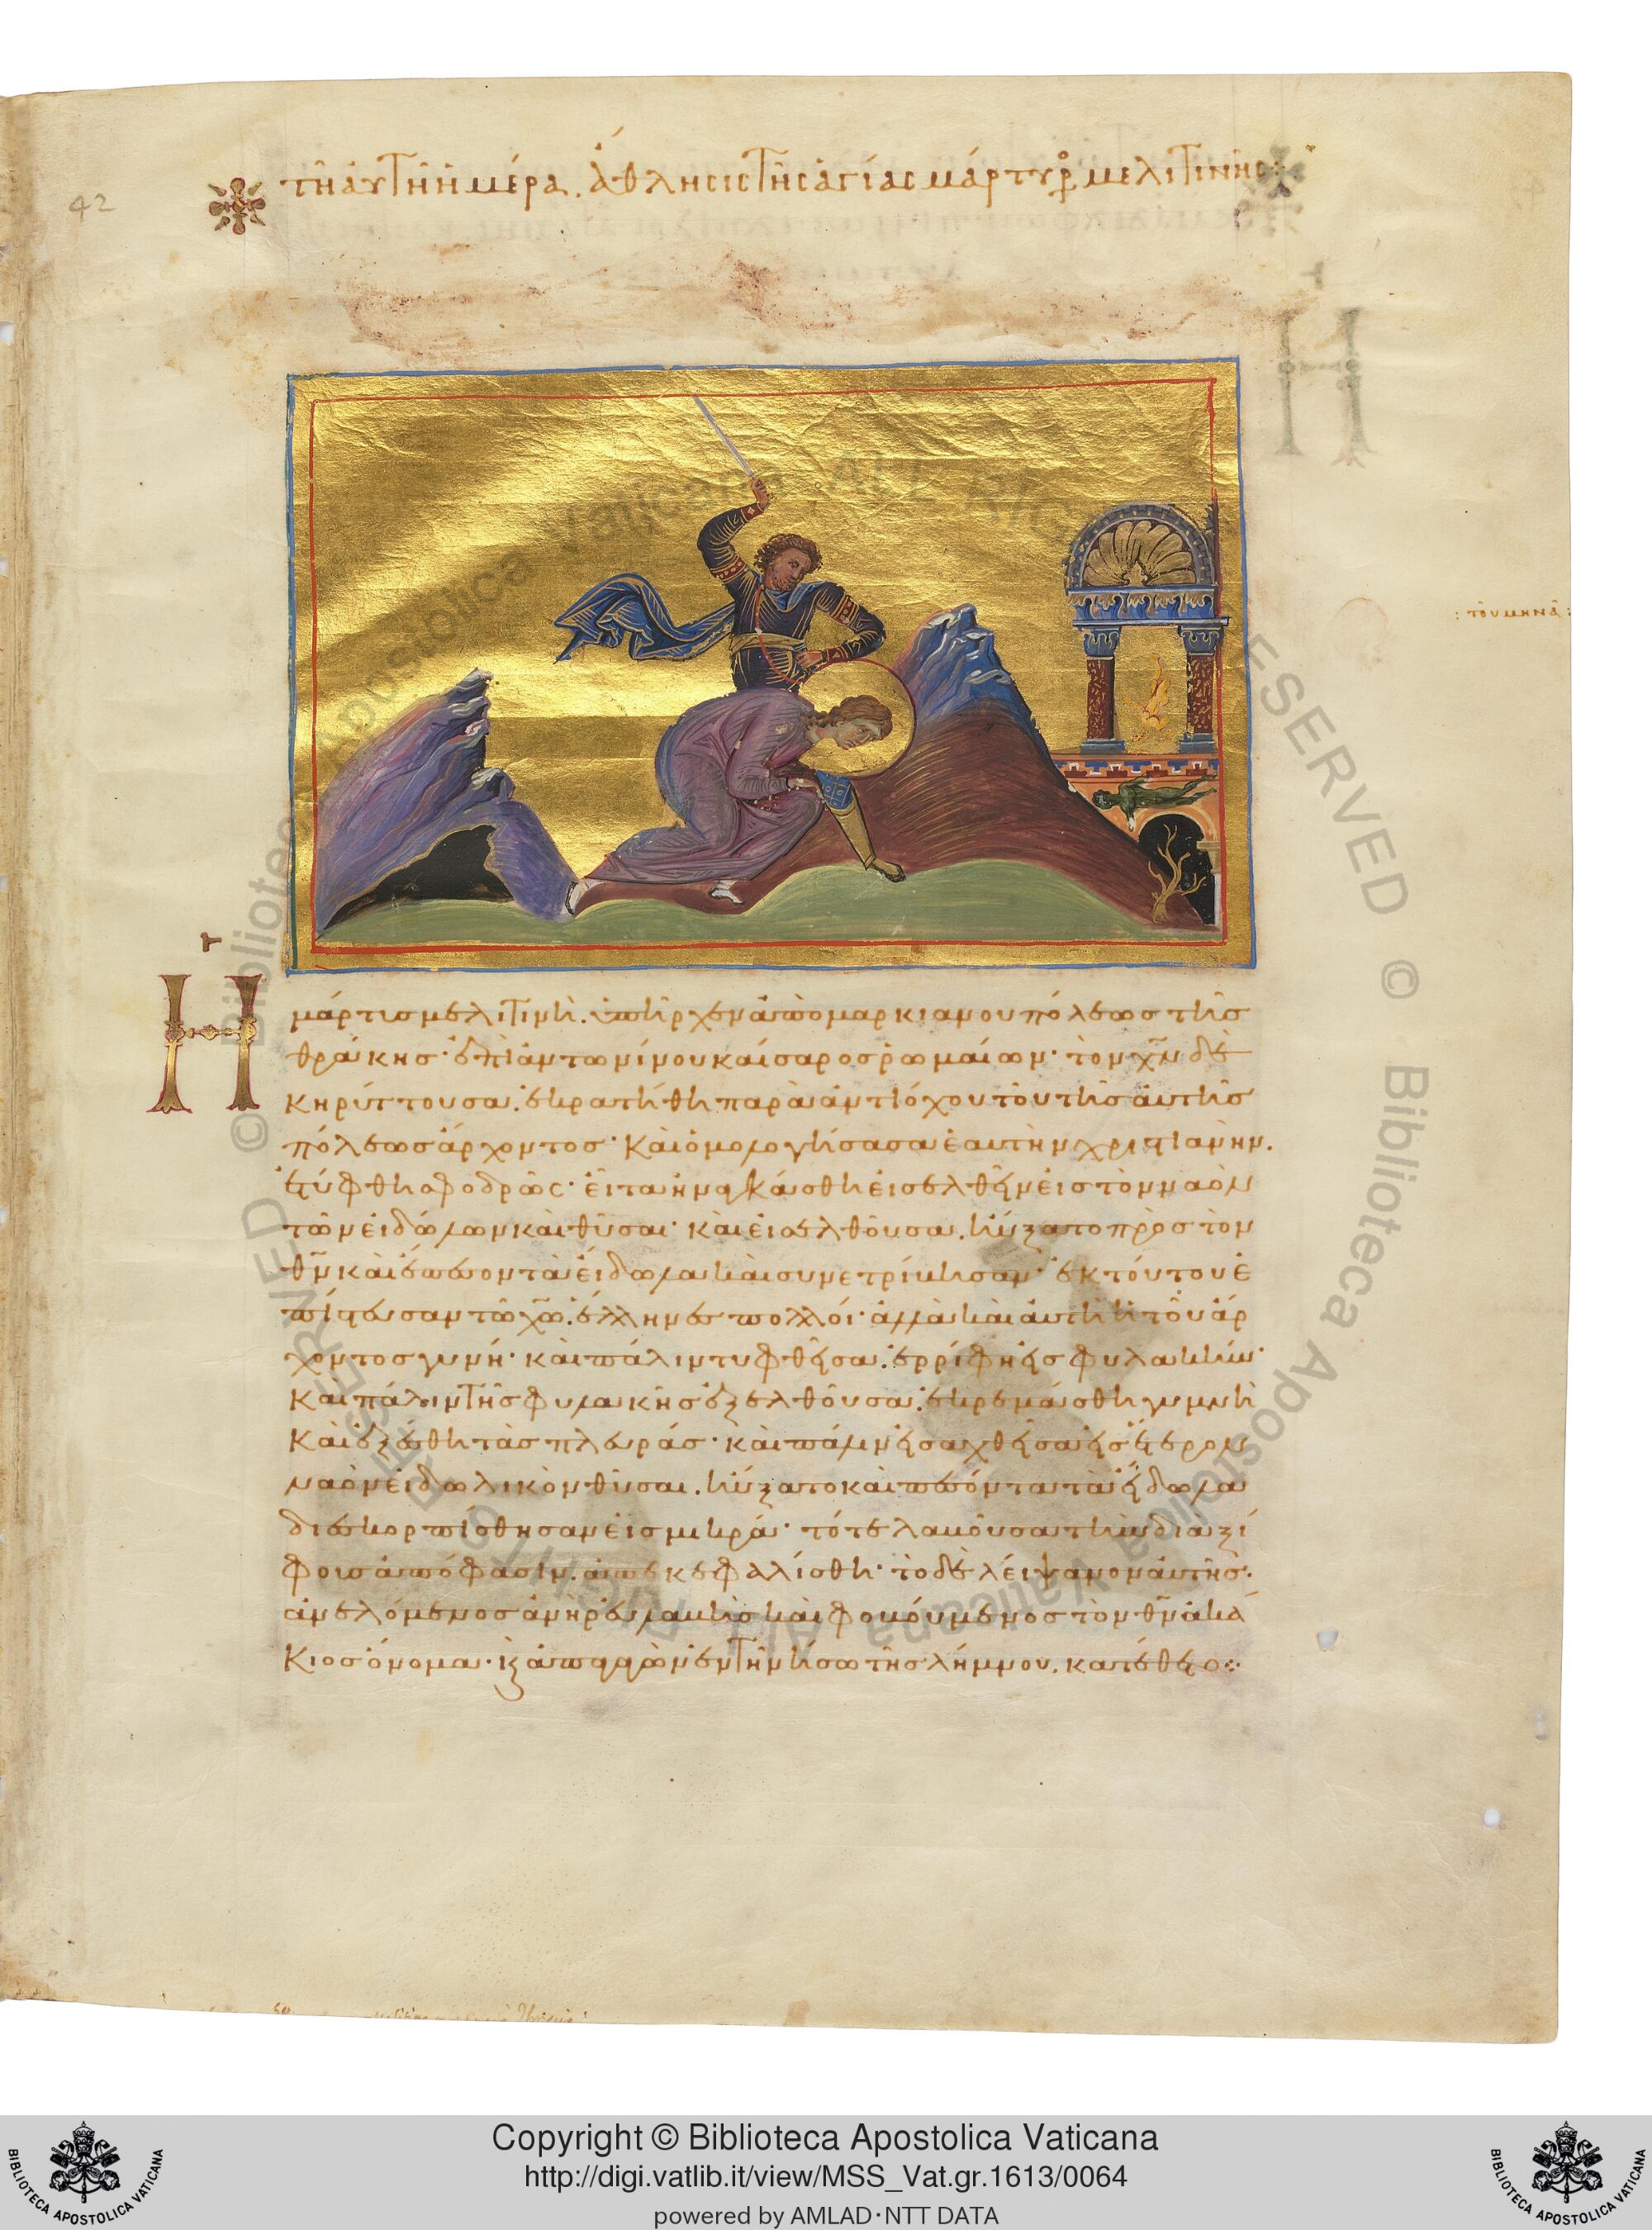 42
τῆ αὐτῆ ἡμέρα. ἄθλησις τῆς ἁγίας μάρτυρ μελιτινῆς
: τοῦ μηνᾶ :
Ἡ μάρτις μελιτινὴ. ὑπῆρχεν ἀπὸ μαρκιανουπόλεως τῆς
θράκης· ἐπὶ ἀντωνίνου καίσαρος ῥωμαίων· τὸν χν̄ δὲ
κηρύττουσα. ἐκρατήθη παρὰ ἀντιόχου τοῦ τῆς αὐτῆς
πόλεως ἄρχοντος· καὶ ὁμολογήσασα ἑαυτὴν χριστιανὴν.
ἐτύφθη σφοδρῶς· εἶτα ἠναγκάσθη εἰσελθεῖν εἰς τὸν ναὸν
τῶν εἰδώλων καὶ θῦσαι· καὶ εἰσελθοῦσα. ηὔξατο πρὸς τὸν
θν̄ καὶ ἔπεσον τὰ εἴδωλα καὶ συνετρίβησαν· ἐκ τούτου ἐ
πίστευσαν τῶ χω̄. ἕλληνες πολλοί· ἀλλὰ καὶ αὐτὴ ἡ τοῦ ἄρ
χοντος γυνή· καὶ πάλιν τυφθεῖσα. ἐρρίφη εἰς φυλακήν·
καὶ πάλιν τῆς φυλακῆς ἐξελθοῦσα. ἐκρεμάσθη γυμνὴ
καὶ ἐξέσθη τὰς πλευράς· καὶ πάλιν εἰσαχθεῖσα εἰς ἕτερον
ναὸν εἰδωλικὸν θῦσαι. ηὔξατο καὶ πεσόντα τὰ εἴδωλα
διεσκορπίσθησαν εἰς μικρά· τότε λαβοῦσα τὴν διὰ ξί
φους ἀπόφασιν. ἀπεκεφαλίσθη· τὸ δὲ λείψανον αὐτῆς.
ἀνελόμενος ἀνὴρ εὐλαβὴς καὶ φοβούμενος τὸν θν̄ ἀκά
κιος ὄνομα· κ ἀπαγαγὼν ἐν τῆ νήσω τῆς λήμνου. κατέθετο
© Biblioteca Apostolica Vaticana ALL RIGHTS RESERVED © Biblioteca Apostolica Vaticana ALL RIGHTS RESERVED
Copyright © Biblioteca Apostolica Vaticana
http://digi.vatlib.it/view/MSS_Vat.gr.1613/0064
powered by AMLAD·NTT DATA
BIBLIOTECA APOSTOLICA VATICANA
BIBLIOTECA APOSTOLICA VATICANA